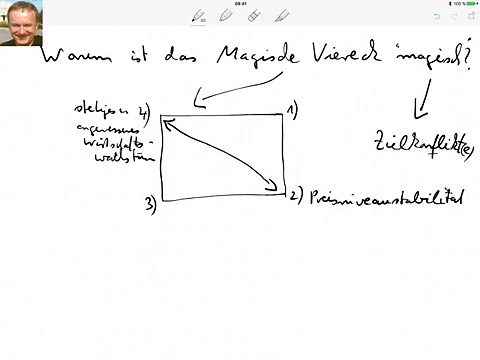 09:41
100 %
Warum ist das Magische Viereck "magisch"?
stetiges u. 4)
1)
angemessenes
Wirtschafts-
wachstum
Zielkonflikt(e)
3)
2) Preisniveaustabilität